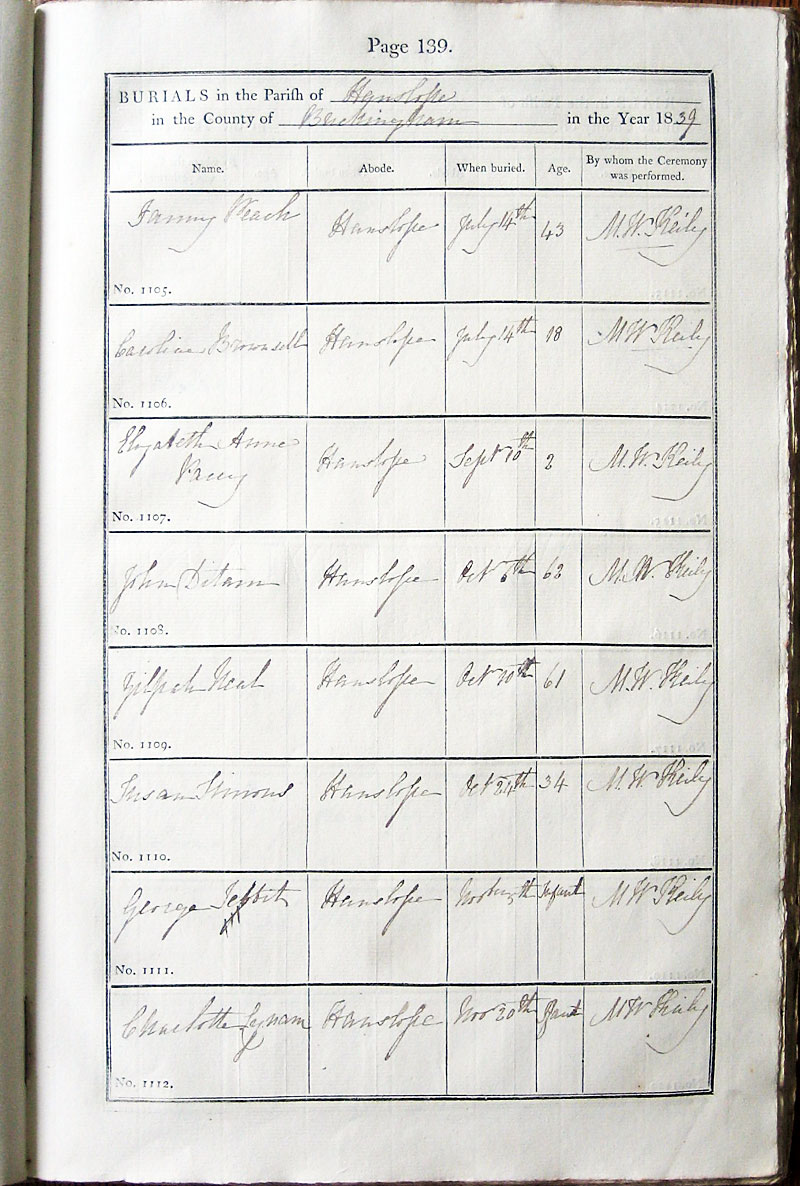 Page 139.
BURIALS in the Parish of Hanslope
in the County of Buckingham in the Year 1839
Name. Abode. When buried. Age. By whom the Ceremony was performed.
Fanny Peach Hanslope July 14th 43 M. W. Keily
No. 1105.
Caroline Brownsell Hanslope July 14th 18 M W Keily
No. 1106.
Elizabeth Anne Hanslope Sept 10th 2 M. W. Keily
No. 1107.
John Hanslope Oct 6th M. W. Keily
No. 1108.
Zilpah Neal Hanslope Oct 10th 61 M. W. Keily
No. 1109.
Susan Simons Hanslope Oct 24th 34 M. W. Keily
No. 1110.
George Hanslope Infant M W Keily
No. 1111.
Charlotte Lynam Hanslope Nov 20th M W Keily
No. 1112.